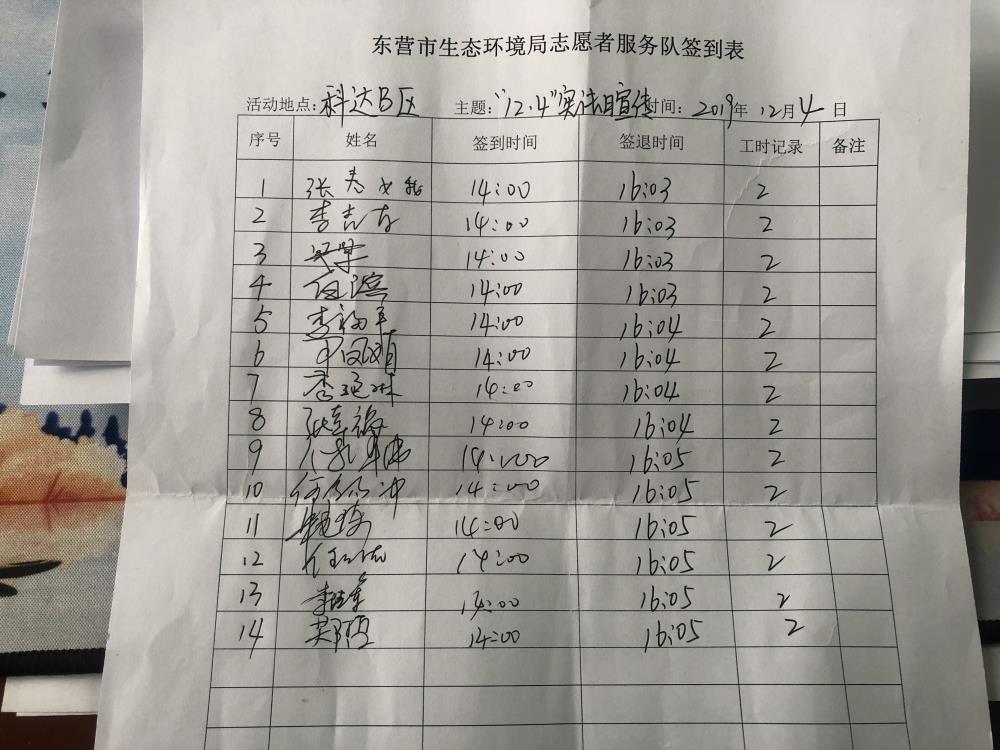 东营市生态环境局志愿者服务队签到表
活动地点:科达B区 主题:"12.4"宪法日宣传 时间:2019年12月4日
序号 姓名 签到时间 签退时间 工时记录 备注
1 14:00 16:03 2
2 李吉 14:00 16:03 2
3 14:00 16:03 2
4 14:00 16:03 2
5 李福军 14:00 16:04 2
6 14:00 16:04 2
7 李延 14:00 16:04 2
8 张 福 14:00 16:04 2
9 14:00 16:05 2
10 何 冲 14:00 16:05 2
11 14:00 16:05 2
12 任 14:00 16:05 2
13 14:00 16:05 2
14 14:00 16:05 2